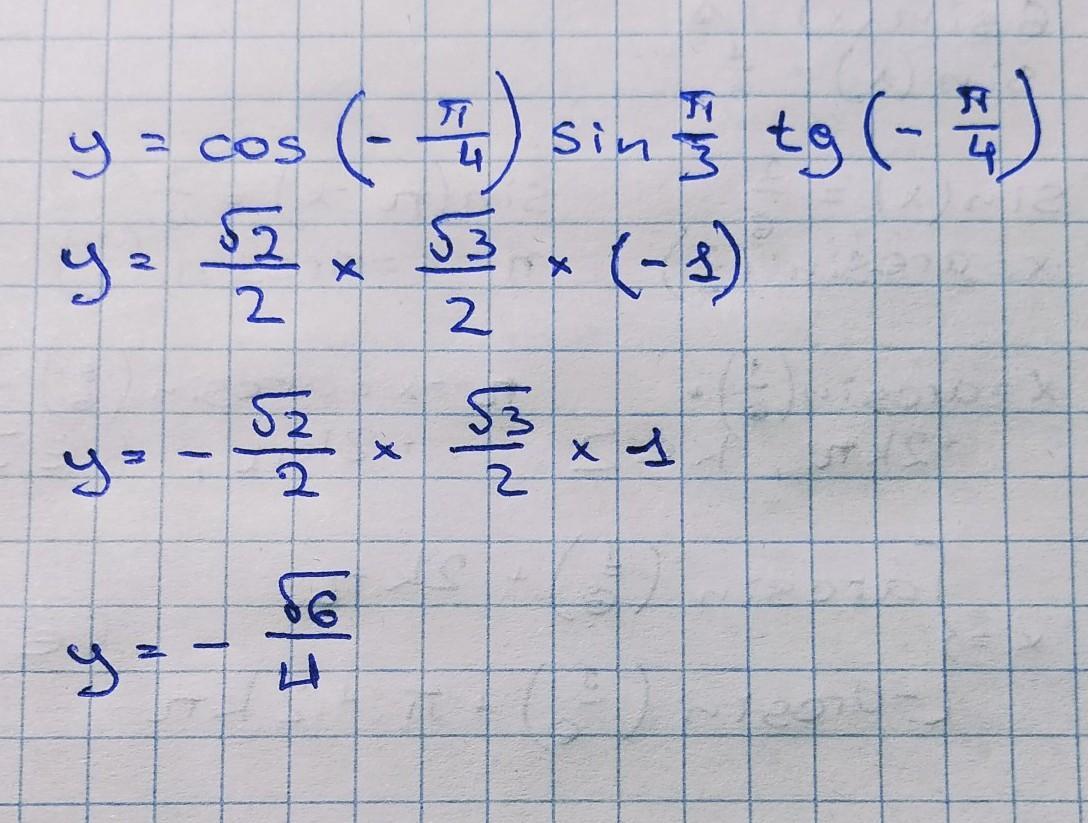 y = cos (- π/4) sin π/3 tg (- π/4)
y = √2/2 × √3/2 × (- 1)
y = - √2/2 × √3/2 × 1
y = - √6/4